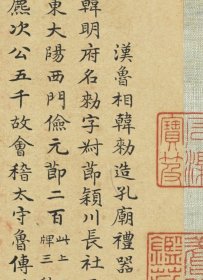 漢魯相韓勑造孔廟禮器
韓明府名勑字叔節潁川長社
東大陽西門儉元節二百 此上
碑三
麃次公五千故會稽太守魯傅
寶笈